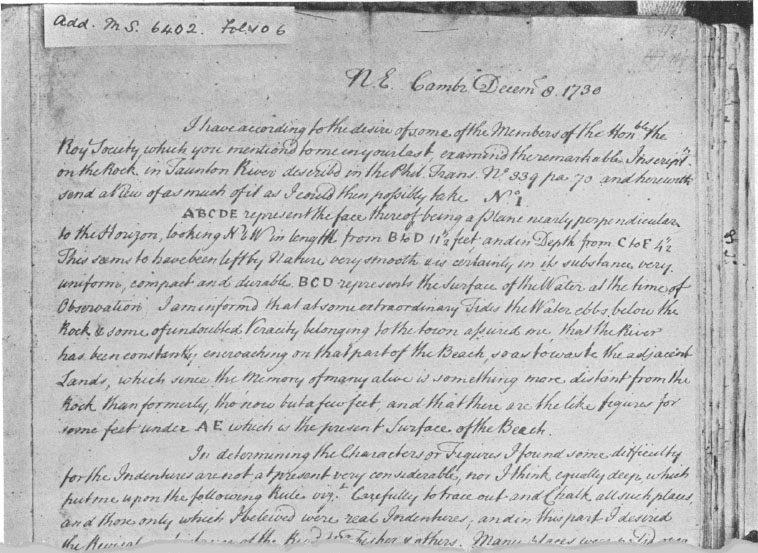 Add. M.S. 6402. fol. 106
N. E. Cambr Decemr 8. 1730
I have according to the desire of some of the Members of the Honble. the
Roy Society which you mentiond to me in your last, examind the remarkable Inscript.n
on the Rock in Taunton River describd in the Phil. Trans. No. 339 pa 70 and herewith
send a View of as much of it as I could then possibly take No. 1
ABCDE represent the face thereof being a Plane nearly perpendicular
to the Horizon, looking N b W in length from B to D 11½ feet and in Depth from C to F 4½
This seems to have been left by Nature very smooth & is certainly in its substance very
uniform, compact and durable BCD represents the Surface of the Water at the time of
Observation I am informd that at some extraordinary Tides the Water ebbs below the
Rock & some of undoubted Veracity belonging to the town assured me that the River
has been constantly encroaching on that part of the Beach, so as to waste the adjacent
Lands, which since the Memory of many alive is something more distant from the
Rock than formerly, tho' now but a few feet, and that there are the like figures for
some feet under AE which is the present Surface of the Beach.
In determining the Characters or Figures I found some difficulty
for the Indentures are not at present very considerable, nor I think equally deep, which
put me upon the following Rule viz.t Carefully to trace out and Chalk all such places
and those only which I beleived were real Indentures; and in this part I desired
the Revisal of the Revd Fisher & others. Many places were